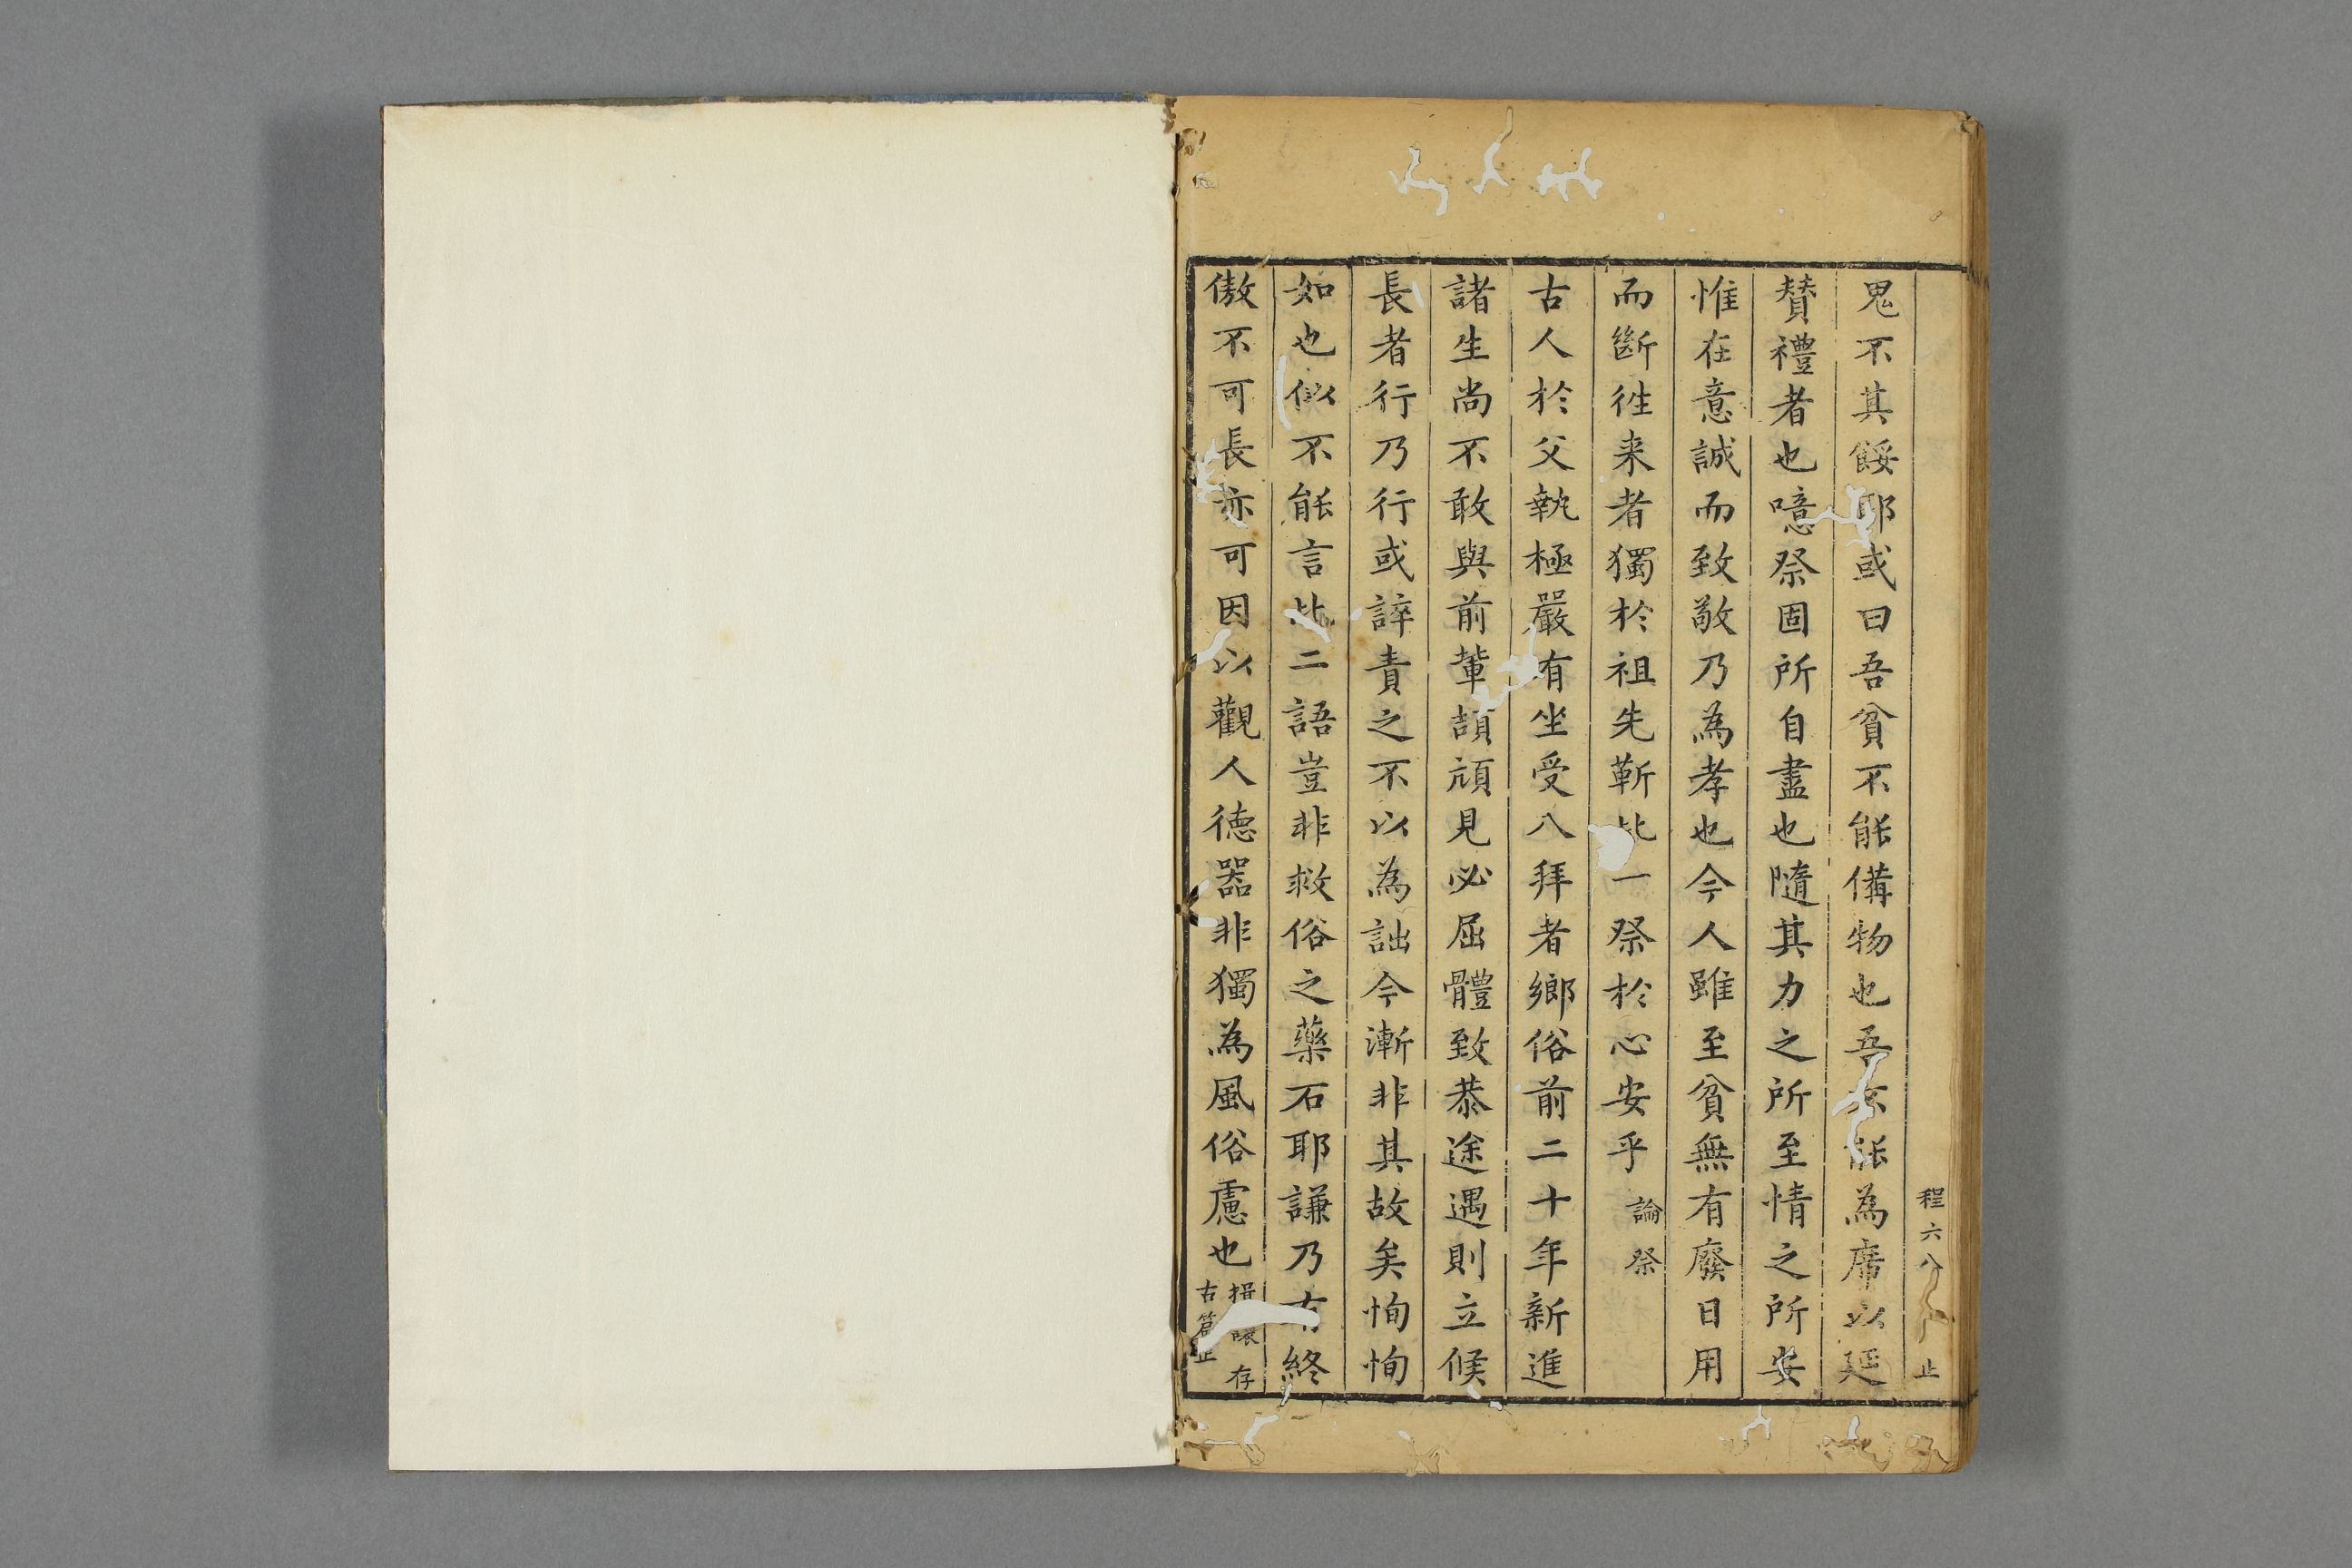 鬼不其餒耶或曰吾貧不能備物也吾不能為席以延
賛禮者也噫祭固所自盡也隨其力之所至情之所安
惟在意誠而致敬乃為孝也今人雖至貧無有廢日用
而斷徃来者獨於祖先靳此一祭於心安乎 論祭
古人於父執極嚴有坐受八拜者鄉俗前二十年新進
諸生尚不敢與前輩頡頏見必屈體致恭途遇則立候
長者行乃行或誶責之不以為詘今漸非其故矣恂恂
如也似不能言此二語豈非救俗之藥石耶謙乃有終
傲不可長亦可因以觀人徳器非獨為風俗慮也
存
古篇止
程六八
止